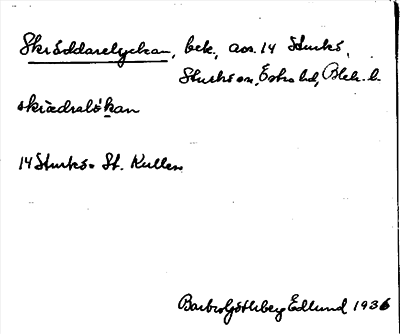 Skräddarelyckan, bek., avs. 14 Sturkö,
Sturkö sn, Östra hd, Blek. l.
skrædralökan
14 Sturkö. St. Kullen
Barbro Götlberg Edlund 1936